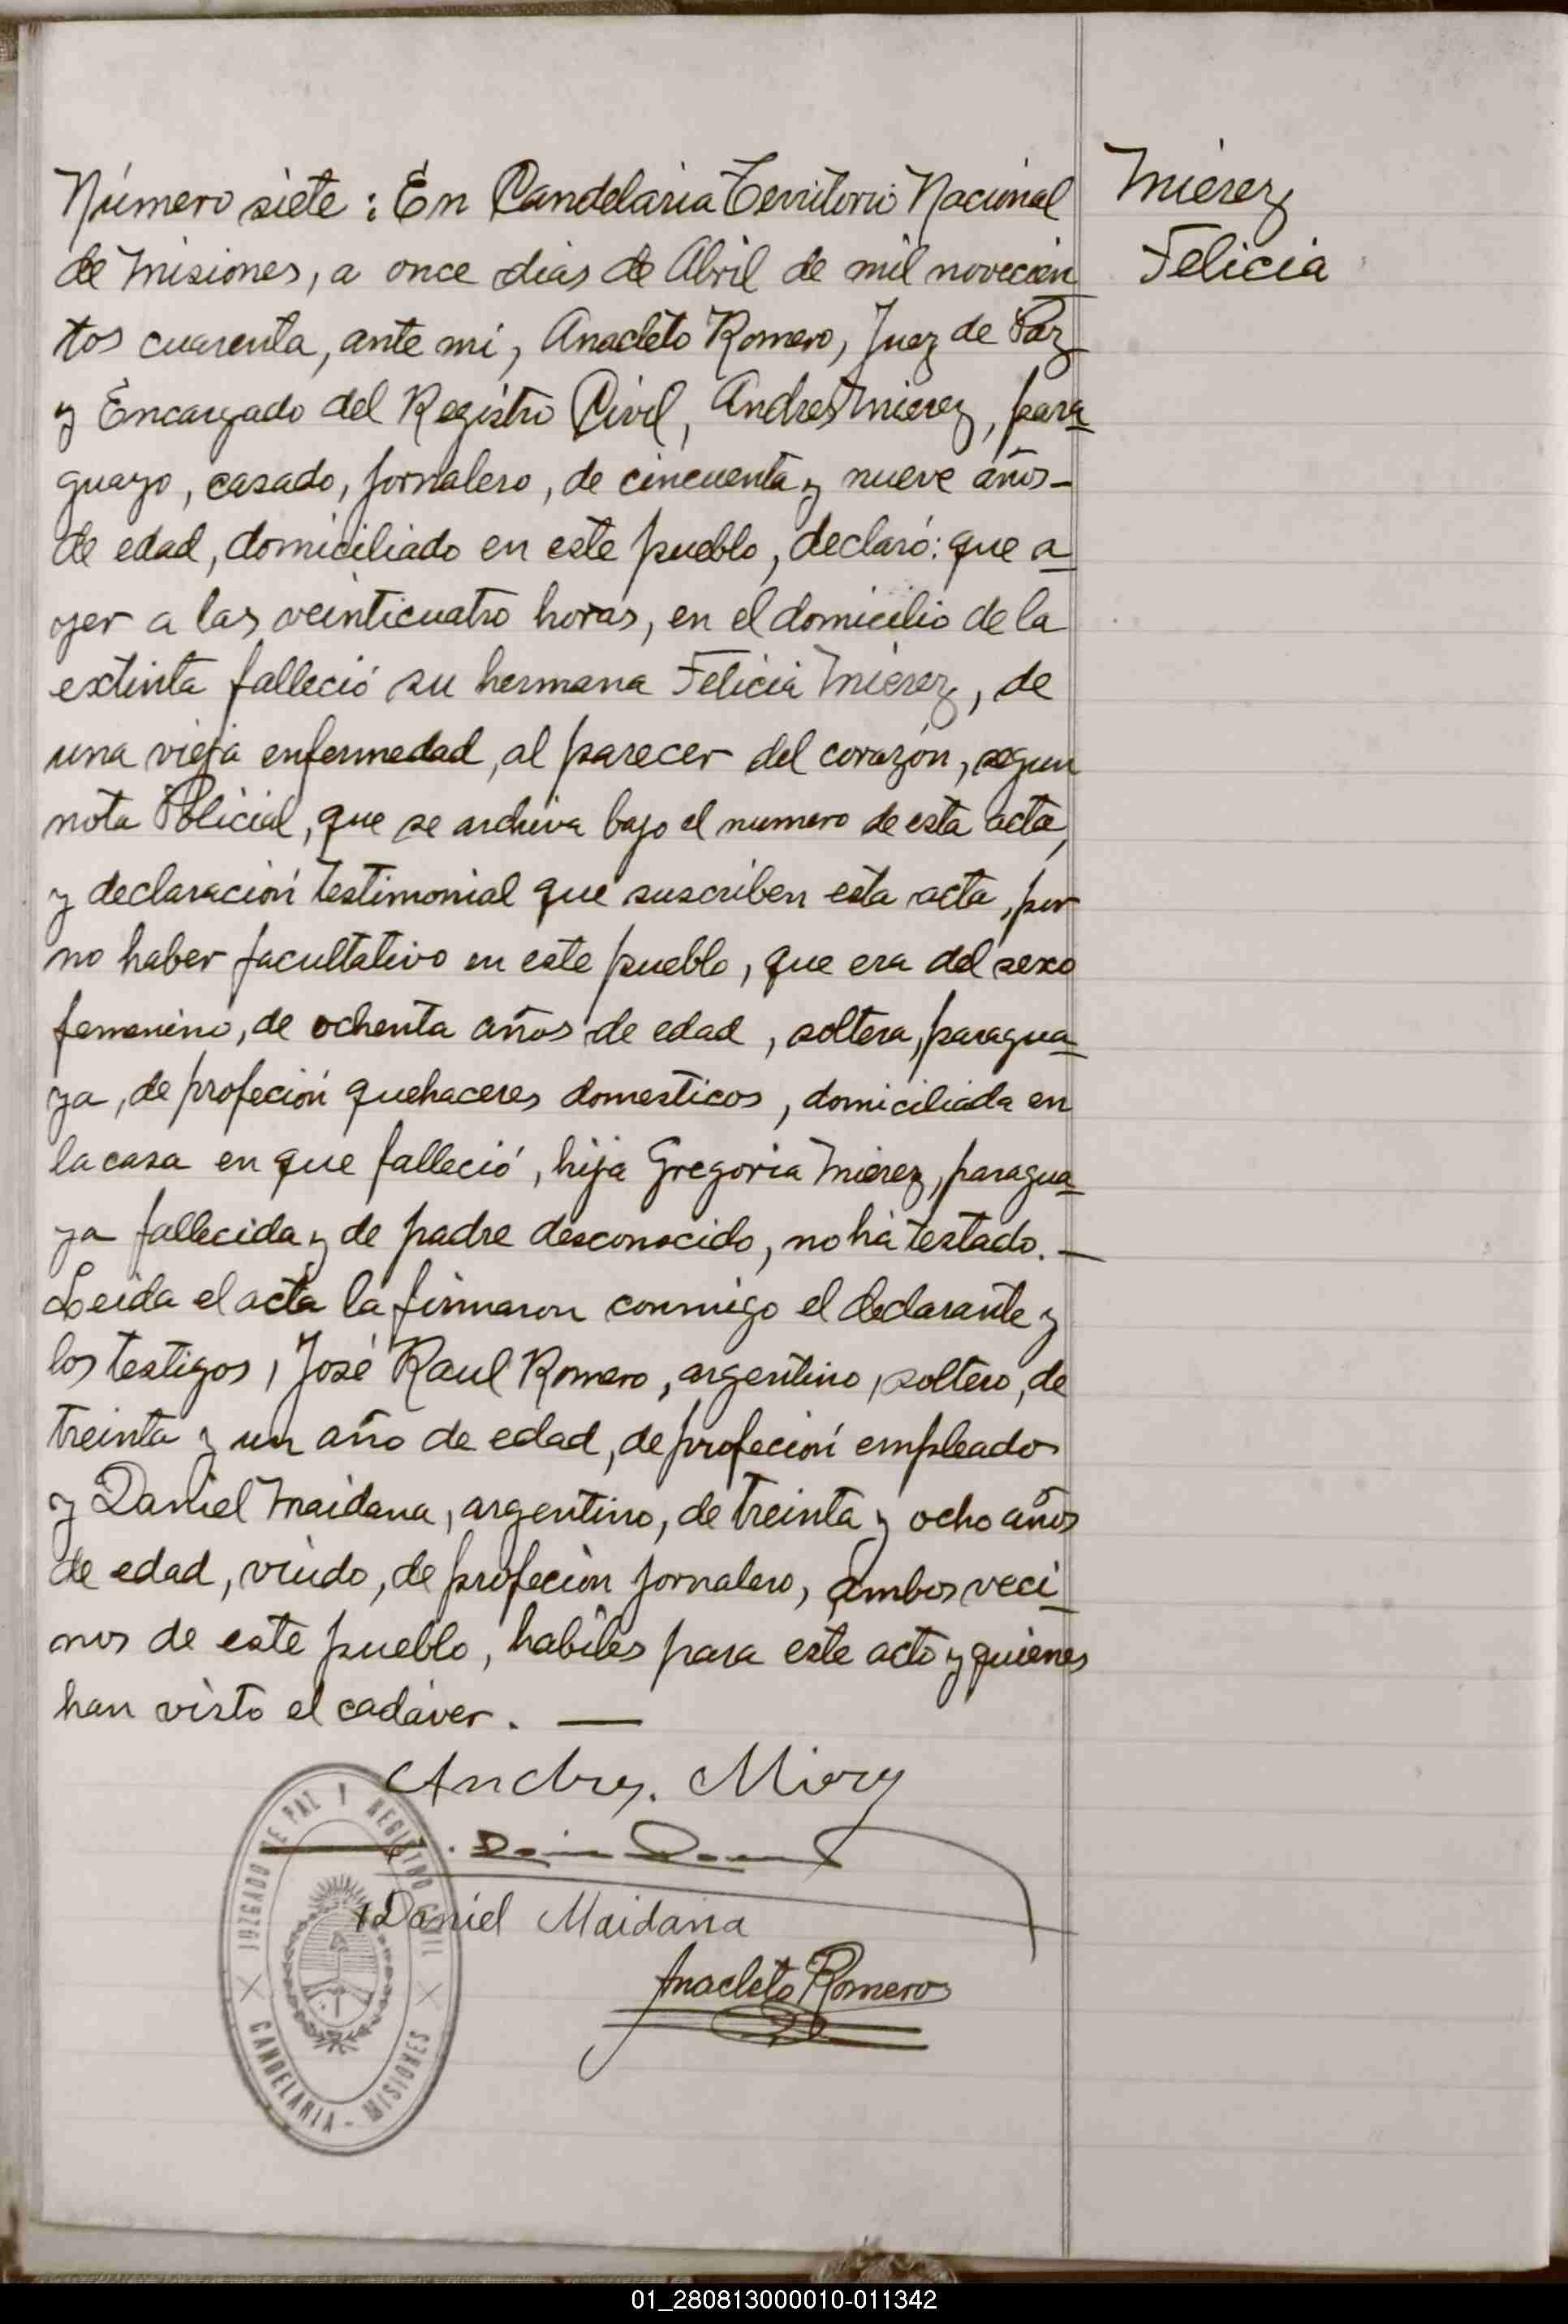 Mierez
Felicia
Número siete: En Candelaria Territorio Nacional
de Misiones, a once dias de Abril de mil novecien
tos cuarenta, ante mi, Anacleto Romero, Juez de Paz
y Encargado del Registro Civil, Andres Mierez, para
guayo, casado, jornalero, de cincuenta y nueve años-
de edad, domiciliado en este pueblo, declaró: que a
yer a las veinticuatro horas, en el domicilio de la
extinta falleció su hermana Felicia Mierez, de
una vieja enfermedad, al parecer del corazón, segun
nota Policial, que se archiva bajo el numero de esta acta,
y declaración testimonial que suscriben esta acta, por
no haber facultativo en este pueblo, que era del sexo
femenino, de ochenta años de edad, soltera, paragua
ya, de profeción quehaceres domesticos, domiciliada en
la casa en que falleció, hija Gregoria Mierez, paragua
ya fallecida y de padre desconocido, no ha testado. —
Leida el acta la firmaron conmigo el declarante y
los testigos, José Raul Romero, argentino, soltero, de
treinta y un año de edad, de profeción empleado
y Daniel Maidana, argentino, de treinta y ocho años
de edad, viudo, de profeción jornalero, ambos veci
nos de este pueblo, habiles para este acto y quienes
han visto el cadáver. —
Andres. Mierez
Daniel Maidana
Anacleto Romero
JUZGADO DE PAZ Y REGISTRO CIVIL
CANDELARIA - MISIONES
01_280813000010-011342